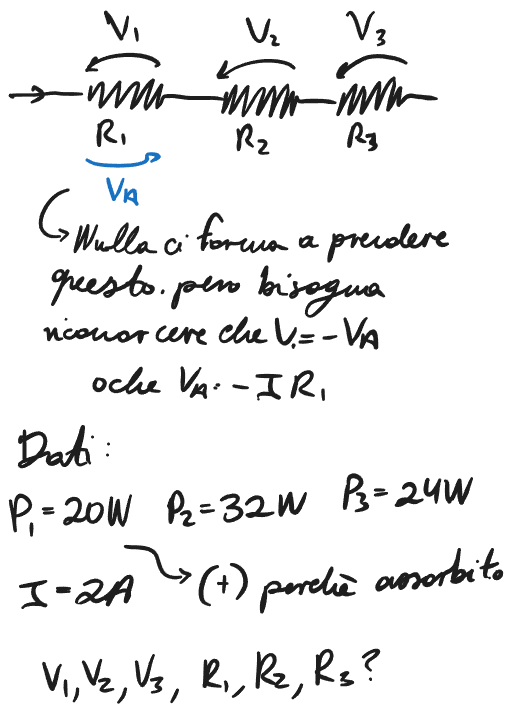 V₁ V₂ V₃
R₁ R₂ R₃
V_A
Nulla ci forma a prendere
questo. pero bisogna
riconoscere che V₁=-V_A
oche V_A. -I R₁
Dati:
P₁=20W P₂=32W P₃=24W
I=2A (+) perchè assorbito
V₁,V₂,V₃, R₁,R₂,R₃?